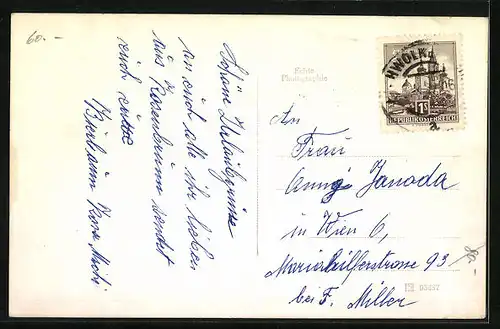 60.-
Schöne Urlaubsgrüsse
an euch alle ihr lieben
aus Rosenbaum sendet
euch eure
Bierbaum Rosa Michi
Echte
Photographie
HWOLK
1S
REPUBLIK ÖSTERREICH
An
Frau
Anny Janoda
in Wien 6,
Mariahilferstrasse 93
bei F. Miller
80.-